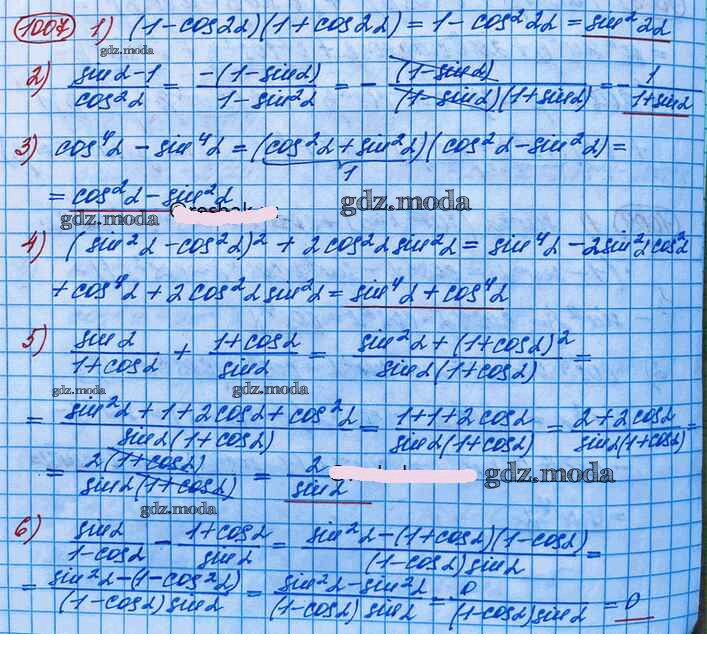 1007 1) (1-cos2α)(1+cos2α) = 1-cos²2α = sin²2α
gdz.moda
2) (sinα-1)/cos²α = -(1-sinα)/(1-sin²α) = - (1-sinα)/((1-sinα)(1+sinα)) = - 1/(1+sinα)
3) cos⁴α - sin⁴α = (cos²α + sin²α)(cos²α - sin²α) =
1
= cos²α - sin²α
gdz.moda
gdz.moda
4) (sin²α - cos²α)² + 2cos²α sin²α = sin⁴α - 2sin²α cos²α
+ cos⁴α + 2cos²α sin²α = sin⁴α + cos⁴α
5) sinα/(1+cosα) + (1+cosα)/sinα = (sin²α + (1+cosα)²)/(sinα(1+cosα)) =
gdz.moda gdz.moda
= (sin²α + 1 + 2cosα + cos²α)/(sinα(1+cosα)) = (1+1+2cosα)/(sinα(1+cosα)) = (2+2cosα)/(sinα(1+cosα)) =
= 2(1+cosα)/(sinα(1+cosα)) = 2/sinα
gdz.moda
gdz.moda
6) sinα/(1-cosα) - (1+cosα)/sinα = (sin²α - (1+cosα)(1-cosα))/((1-cosα)sinα) =
= (sin²α - (1-cos²α))/((1-cosα)sinα) = (sin²α - sin²α)/((1-cosα)sinα) = 0/((1-cosα)sinα) = 0